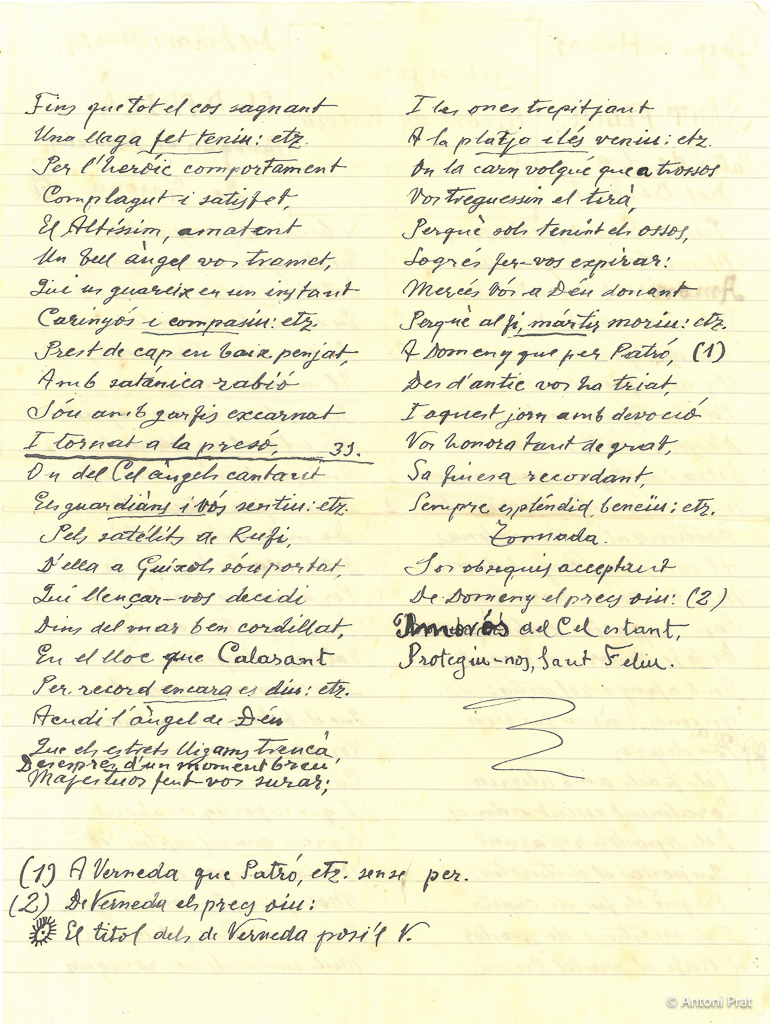 Fins que tot el cos sagnant
Una llaga fet teniu: etz.
Per l'heròic comportament
Complagut i satisfet,
El Altíssim, amatent
Un bell àngel vos tramet,
Qui us guareix en un instant
Carinyós i compasiu: etz.
Prest de cap en baix penjat,
Amb satánica rabió
Sóu amb garfis excarnat
I tornat a la presó, 39.
On del Cel àngels cantant
Els guardiàns i vós sentiu: etz.
Pels satélits de Rufi,
D'ella a Guíxols sóu portat,
Qui llençar-vos decidi
Dins del mar ben cordillat,
En el lloc que Calasant
Per record encara es diu: etz.
Acudí l'àngel de Déu
Que els estrets lligams trencà
Desesprés d'un moment breu
Majestuos fent-vos surar;
I les ones trepitjant
A la platja ilés veniu: etz.
On la carn volgué que a trossos
Vos treguessin el tirà,
Perquè sols tenint els ossos,
Logrés fer-vos expirar:
Mercés Vós a Déu donant
Perquè al fi, mártir moriu: etz.
A Domeny que per Patró, (1)
Des d'antic vos ha triat,
I aquest jorn amb devoció
Vos honora tant de grat,
Sa finesa recordant,
Sempre espléndid beneïu: etz.
Tornada.
Sos obsequis acceptant
De Domeny el precs oiu: (2)
Amorós del Cel estant,
Protegiu-nos, Sant Feliu.
(1) A Verneda que Patró, etz. sense per.
(2) De Verneda els precs oiu:
El titol dels de Verneda posi'l V.
© Antoni Prat